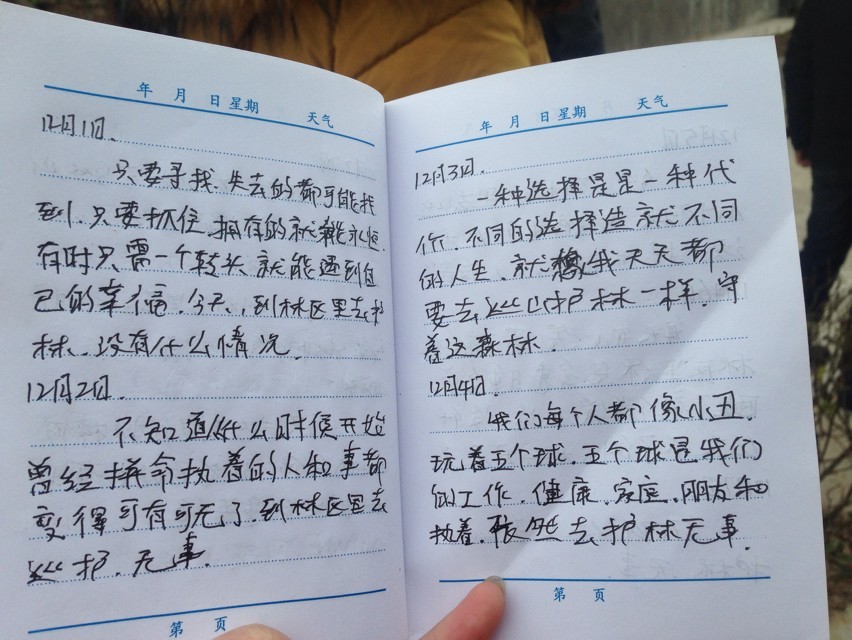 年 月 日 星期 天气
12月1日.
只要寻找.失去的都可能找
到.只要抓住.拥有的就能永恒.
有时只需一个转头就能遇到自
己的幸福.今天,到林区里去护
林、没有什么情况.
12月2日.
不知道从什么时候开始
曾经拼命执着的人和事都
变得可有可无了.到林区里去
巡护.无事.
第 页
年 月 日 星期 天气
12月3日.
一种选择是是一种代
价.不同的选择造就不同
的人生.就像我天天都
要去巡山护林一样.守
着这森林.
12月4日.
我们每个人都像小丑.
玩着五个球.五个球是我们
的工作.健康.家庭.朋友和
执着. 然去护林无事.
第 页